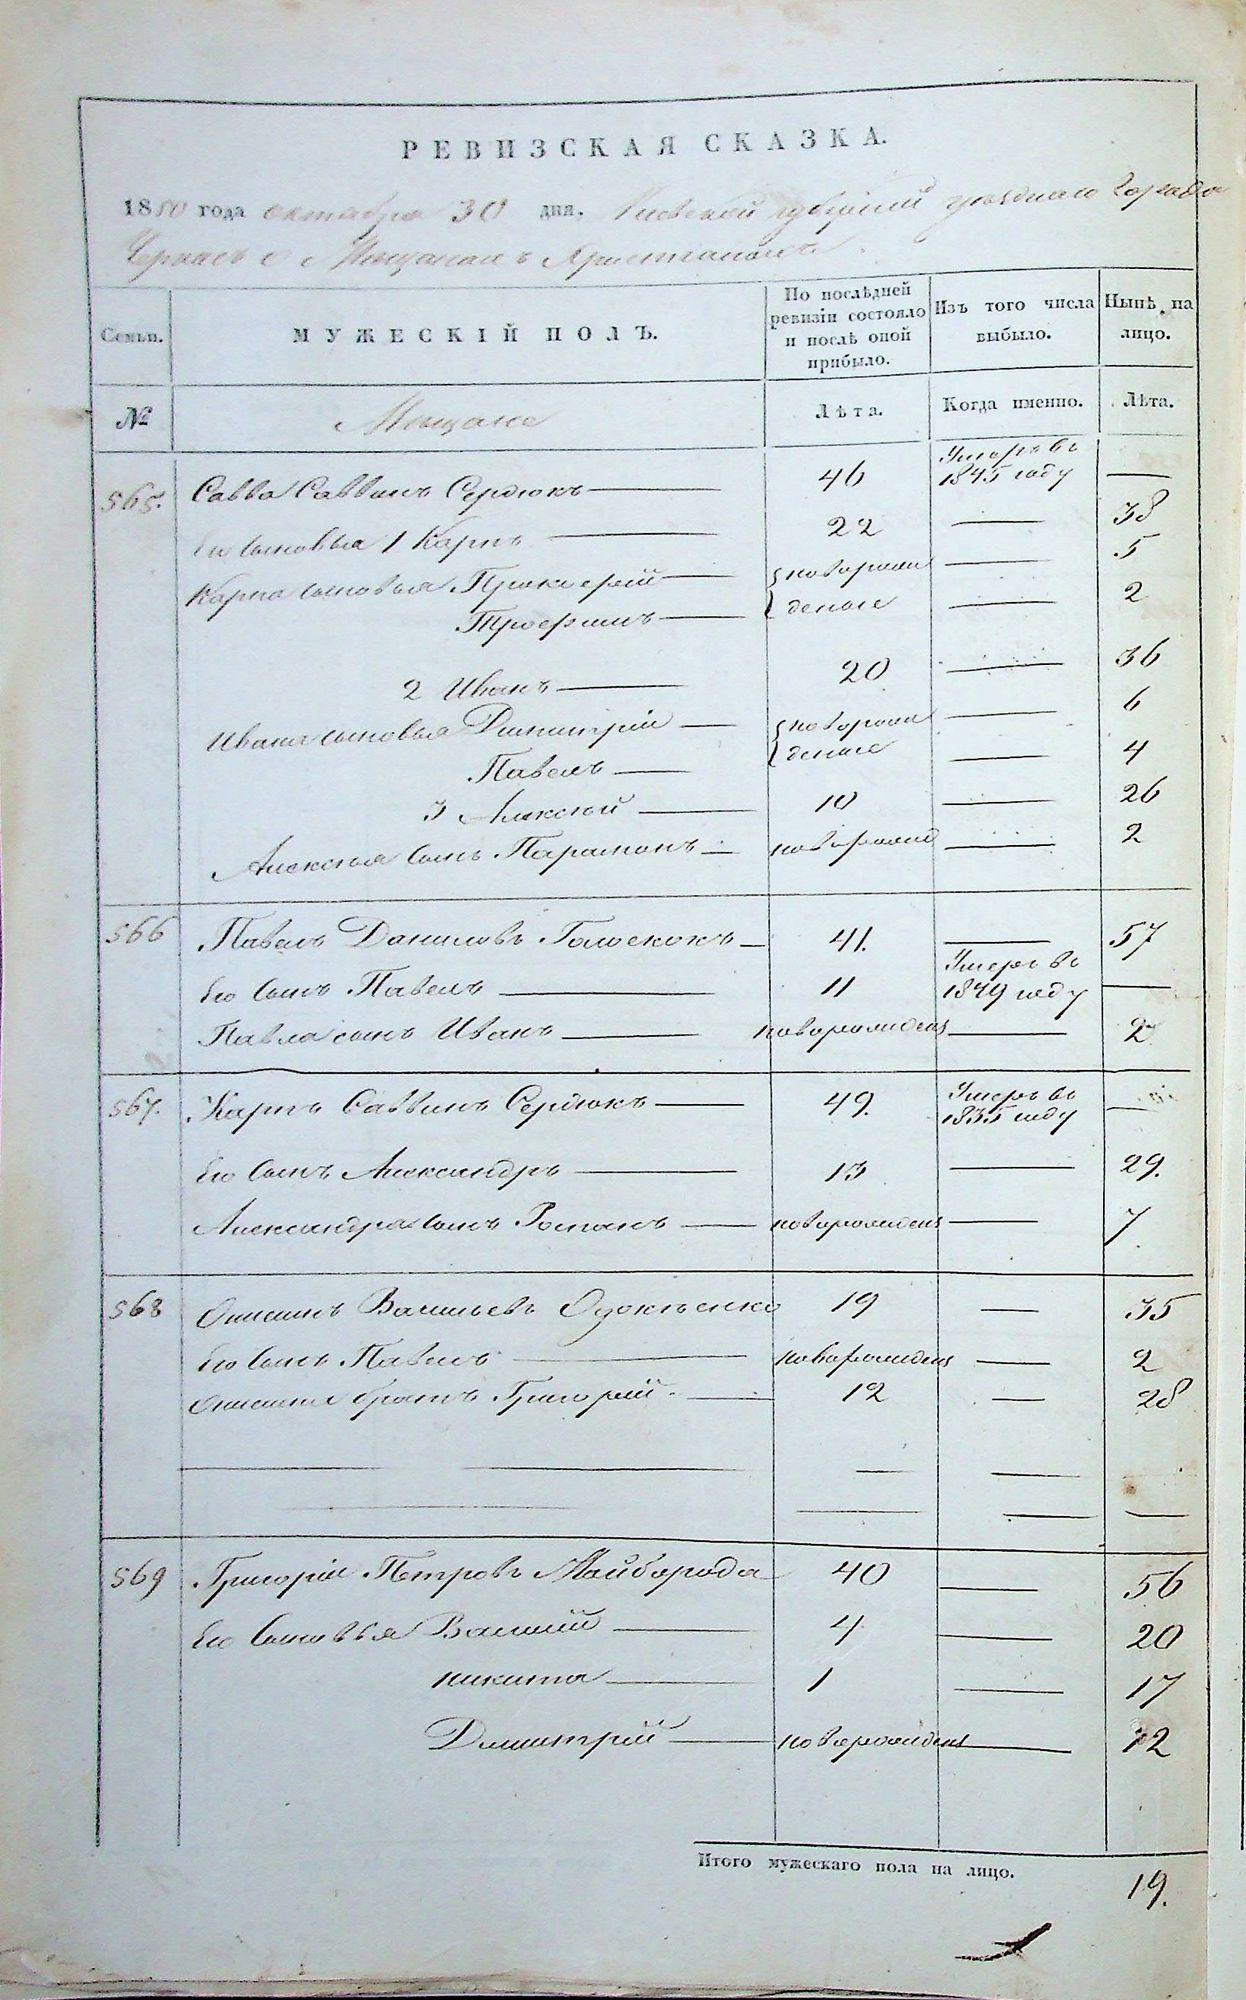 РЕВИЗСКАЯ СКАЗКА.
1850 года октября 30 дня, Киевской губернии уезднаго города
Черкасъ о Мещанахъ Христианахъ
Семьи.
МУЖЕСКІЙ ПОЛЪ.
По послѣдней ревизіи состояло и послѣ оной прибыло.
Изъ того числа выбыло.
Нынѣ на лицо.
№
Мещане
Лѣта.
Когда именно.
Лѣта.
565. Савва Саввинъ Сердюкъ — 46 Умеръ въ 1845 году —
Его сыновья 1 Карпъ — 22 — 38
Карпа сыновья Прокофий — новорож — 5
Трофимъ — денные — 2
2 Иванъ — 20 — 36
Ивана сыновья Димитрій — новорож — 6
Павелъ — денные — 4
3 Алексѣй — 10 — 26
Алексѣя сынъ Парамонъ — новорожд — 2
566 Павелъ Даниловъ Голоскокъ — 41. — 57
Его сынъ Павелъ — 11 Умеръ въ 1849 году —
Павла сынъ Иванъ — новорожденъ — 2
567. Карпъ Саввинъ Сердюкъ — 49. Умеръ въ 1835 году —
Его сынъ Александръ — 13 — 29.
Александра сынъ Романъ — новорожденъ — 7
568 Онисимъ Васильевъ 19 — 35
Его сынъ Павелъ — новорожденъ — 2
Онисима братъ Григорий. — 12 — 28
569 Григорій Петровъ Майборода 40 — 56
Его сыновья Василий — 4 — 20
Никита — 1 — 17
Димитрий — новорожденъ — 12
Итого мужескаго пола на лицо. 19.